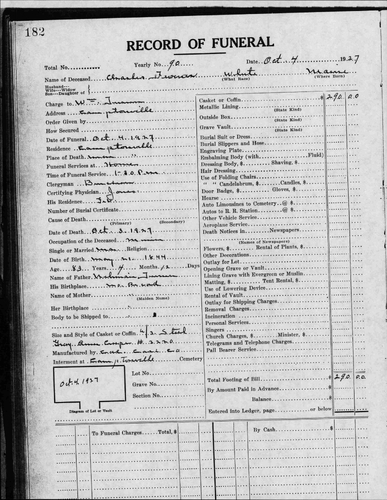 182
RECORD OF FUNERAL
Total No. Yearly No. 90 Date Oct. 4 1927
Name of Deceased Charles White Maine
(What Race) (Where Born)
Husband—
Wife—Widow
Son—Daughter of
Charge to Wm.
Address Camptonville
Order Given by
How Secured
Date of Funeral Oct. 4, 1927.
Residence Camptonville
Place of Death
Funeral Services at Home
Time of Funeral Service 1:30 P.M.
Clergyman
Certifying Physician Jones
His Residence
Number of Burial Certificate
Cause of Death
(Primary) (Secondary)
Date of Death Oct. 3, 1927.
Occupation of the Deceased
Single or Married Religion
Date of Birth May 21, 1844
Age 83 Years 4 Months 12 Days
Name of Father
His Birthplace
Name of Mother
(Maiden Name)
Her Birthplace
Body to be Shipped to
Size and Style of Casket or Coffin 6/3
Gray # 2220
Manufactured by Cal. Casket Co.
Interment at Camptonville Cemetery
Oct 4 1927
Lot No.
Grave No.
Section No.
Diagram of Lot or Vault
Casket or Coffin $ 290 00
Metallic Lining
(State Kind)
Outside Box
(State Kind)
Grave Vault
(State Kind)
Burial Suit or Dress
Burial Slippers and Hose
Engraving Plate
Embalming Body (with Fluid)
Dressing Body, $ Shaving, $
Hair Dressing
Use of Folding Chairs
" " Candelabrum, $ Candles, $
Door Badge, $ Gloves, $
Hearse
Auto Limousines to Cemetery @ $
Autos to R. R. Station @ $
Other Vehicle Service
Aeroplane Service
Death Notices in Newspapers
(Names of Newspapers)
Flowers, $ Rental of Plants, $
Other Decorations
Outlay for Lot
Opening Grave or Vault
Lining Grave with Evergreen or Muslin
Matting, $ Tent Rental, $
Use of Lowering Device
Rental of Vault
Outlay for Shipping Charges
Removal Charges
Incineration
Personal Services
Singers
Church Charges, $ Minister, $
Telegrams and Telephone Charges
Pall Bearer Service
Total Footing of Bill $ 290 00
By Amount Paid in Advance
Balance
Entered into Ledger, page or below
To Funeral Charges Total $ By Cash $